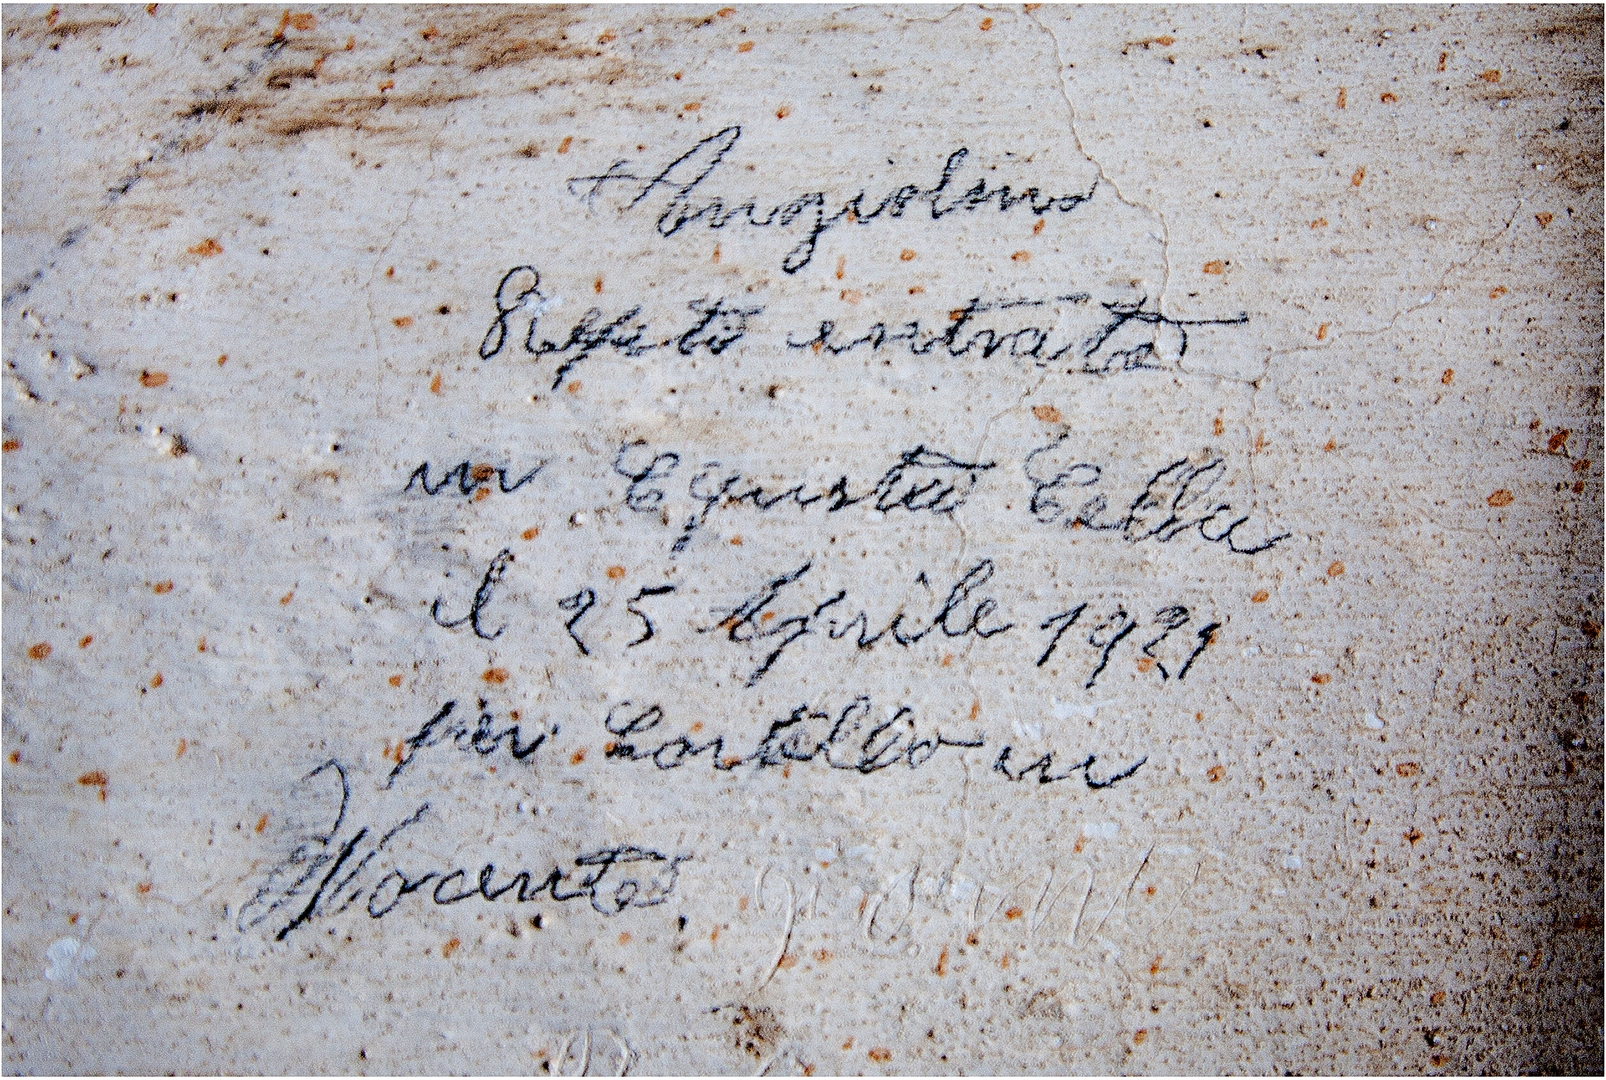 Angiolino
entrato
in Questa Cella
il 25 Aprile 1921
per Cortello in
Nocente